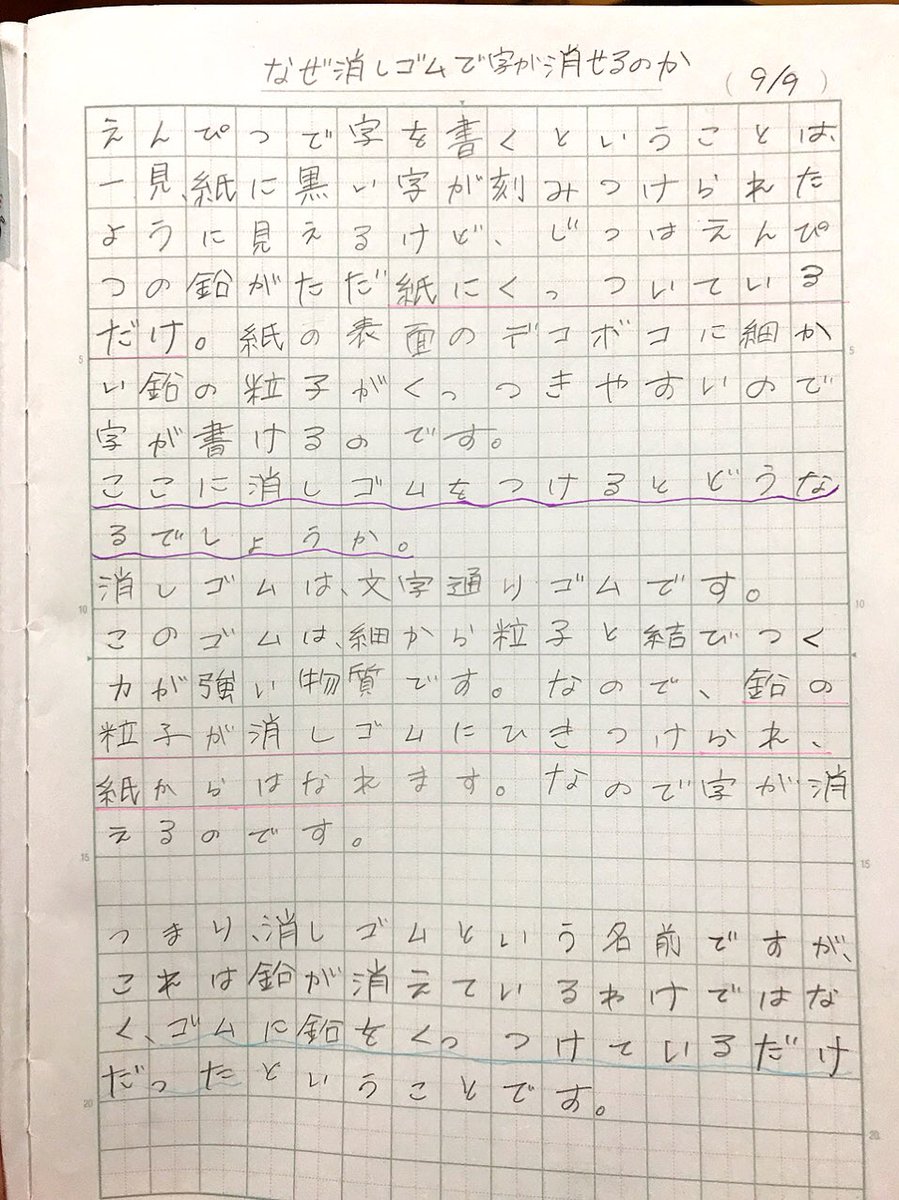 なぜ消しゴムで字が消せるのか
(9/9)
えんぴつで字を書くということは、
一見、紙に黒い字が刻みつけられた
ように見えるけど、じつはえんぴ
つの鉛がただ紙にくっついている
だけ。紙の表面のデコボコに細か
い鉛の粒子がくっつきやすいので
字が書けるのです。
ここに消しゴムをつけるとどうな
るでしょうか。
消しゴムは、文字通りゴムです。
このゴムは、細から粒子と結びつく
力が強い物質です。なので、鉛の
粒子が消しゴムにひきつけられ、
紙からはなれます。なので字が消
えるのです。
つまり、消しゴムという名前ですが、
これは鉛が消えているわけではな
く、ゴムに鉛をくっつけているだけ
だったということです。
5
5
10
10
15
15
20
20